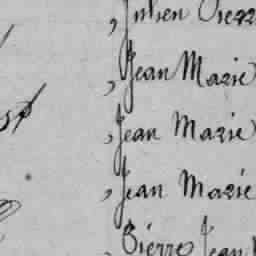 , Julien
, Jean Marie
, Jean Marie
, Jean Marie
, Pierre Jean